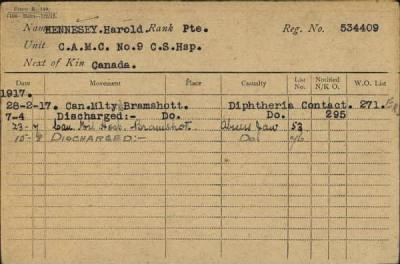 Name HENNESEY. Harold. Rank Pte. Reg. No. 534409
Unit C.A.M.C. No.9 C.S.Hsp.
Next of Kin Canada.
Date Movement Place Casualty List No. Notified N/O.K. W.O. List
1917.
28-2-17. Can.Mlty Bramshott. Diphtheria Contact. 271.
7-4 Discharged:- Do. Do. 295
23-7 Can Mil Hosp. Bramshot Abscess Jaw 53
15-8 DISCHARGED:- Do